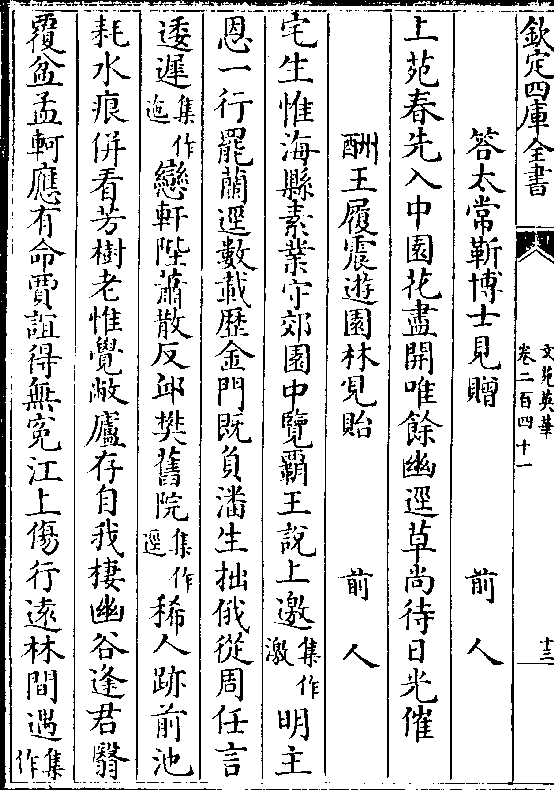 欽定四庫全書
文苑英華
卷二百四十一
十三
答太常靳博士見贈 前人
上苑春先入中園花盡開唯餘幽逕草尚待日光催
酬王履震遊園林見貽 前人
宅生惟海縣素業守郊園中覽霸王說上邀集作激明主
恩一行罷蘭逕數載歴金門既負潘生拙俄從周任言
逶遲集作迤戀軒陛蕭散反邱樊舊院集作逕稀人跡前池
耗水痕併看芳樹老惟覺敝廬存自我棲幽谷逢君翳
覆盆孟軻應有命賈誼得無寃江上傷行逺林間遇集作